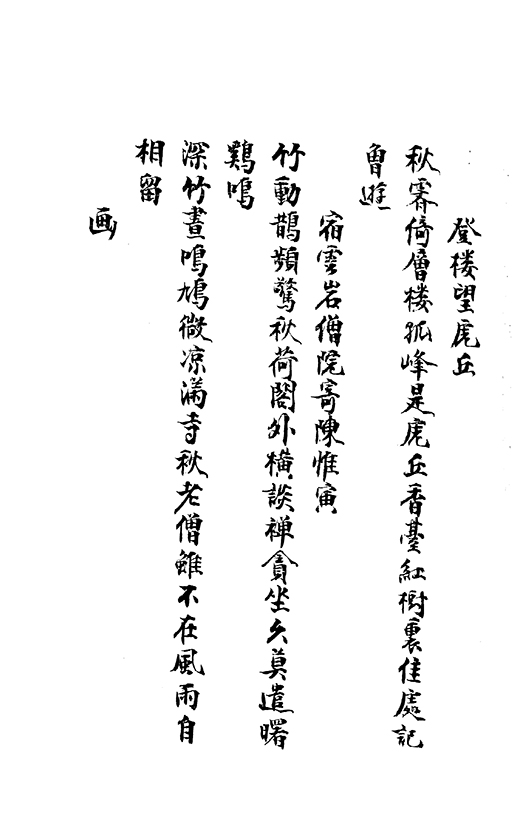 登楼望虎丘
秋霽倚層楼孤峰是虎丘香臺紅樹裏佳處記
曾遊
宿雲岩僧院寄陳惟寅
竹動鵲頻驚秋荷閣外橫談禅貪坐久莫遣曙
鷄鳴
深竹晝鳴鳩微涼滿寺秋老僧雖不在風雨自
相留
画